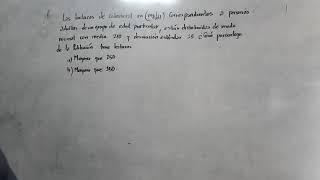 Las lecturas de colesterol en (mg/dl) correspondientes a personas
adultas de un grupo de edad particular, están distribuidas de modo
normal con media 210 y desviación estándar 15 ¿Qué porcentaje
de la Población tiene lecturas
a) Mayores que 250
b) Mayores que